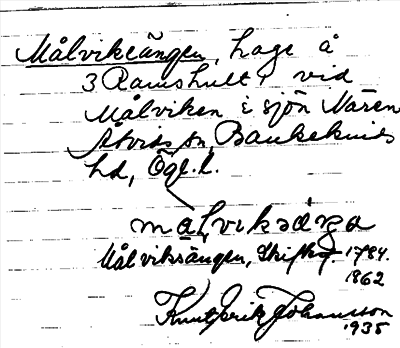 Målviksängen, hage å
3 Ramshult, vid
Målviken i sjön Nären
Åtvids sn, Bankekinds
hd, Ögl. l.
målviksäŋa
Målviksängen, Skifteg. 1784.
1862
Knut Erik Johansson
1935